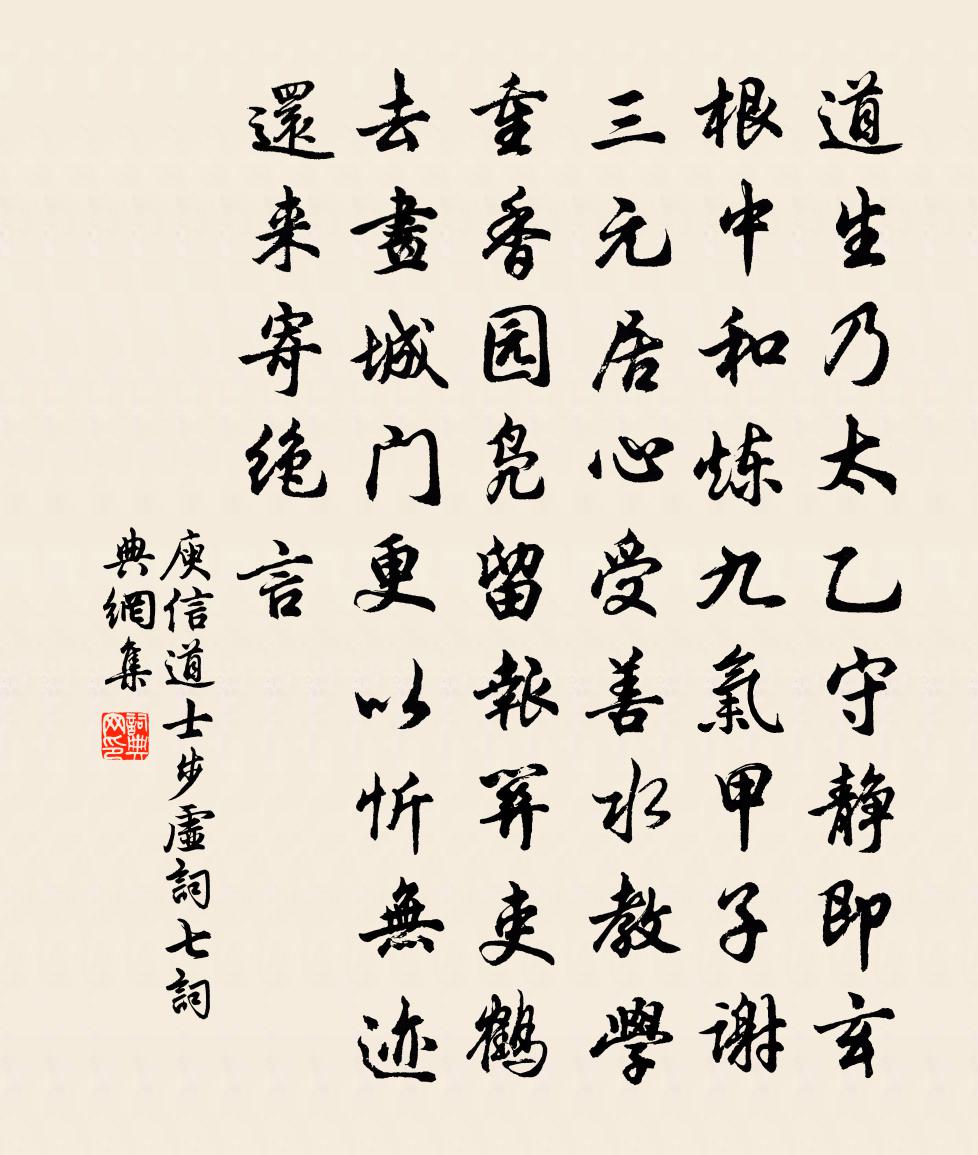 道生乃太乙守静即玄
根中和炼九氣甲子謝
三元居心受善水教學
重香园凫留報關吏鹤
去畫城门更以忻無迹
還来寄绝言
庾信道士步虛詞七詞
典網集
詞典
网印